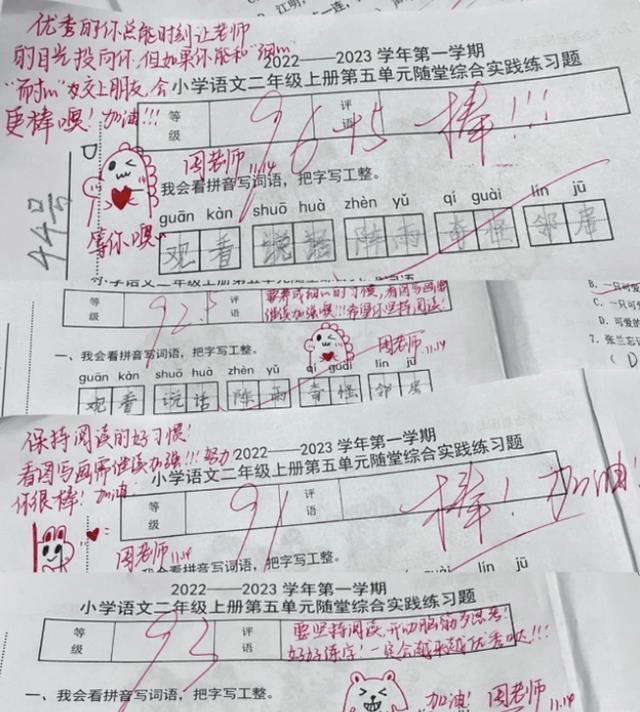 优秀的你总能时刻让老师
的目光投向你,但如果你能和"细心"
"耐心"双交上朋友,会
更棒噢!加油!!!
2022——2023学年第一学期
小学语文二年级上册第五单元随堂综合实践练习题
等级
96.5
评语
棒!!!
周老师
11.14
44号
等你噢~
我会看拼音写词语,把字写工整。
guān kàn shuō huà zhèn yǔ qí guài lín jū
观看 说话 阵雨 奇怪 邻居
等级
92.5
评语
要养成细心的习惯,看图写画需
继续加强噢!!!希望你坚持阅读!
周老师 11.14
一、我会看拼音写词语,把字写工整。
guān kàn shuō huà zhèn yǔ qí guài lín jū
观看 说话 阵雨 奇怪 邻居
B. 一只可爱
C. 一只可
D. 可爱的
7. 张兰忘记
( D
保持阅读的好习惯!
看图写画需继续加强!!!努力
你很棒!加油
2022——2023学年第一学期
小学语文二年级上册第五单元随堂综合实践练习题
等级
91
评语
棒!加油!
周老师 11.14
我会看拼音写词语,把字写工整。
lín jū
2022——2023学年第一学期
小学语文二年级上册第五单元随堂综合实践练习题
等级
93
评语
要坚持阅读,开动脑筋多思考!
好好练字!一定会越来越优秀哒!!!
一、我会看拼音写词语,把字写工整。
加油! 周老师 11.14